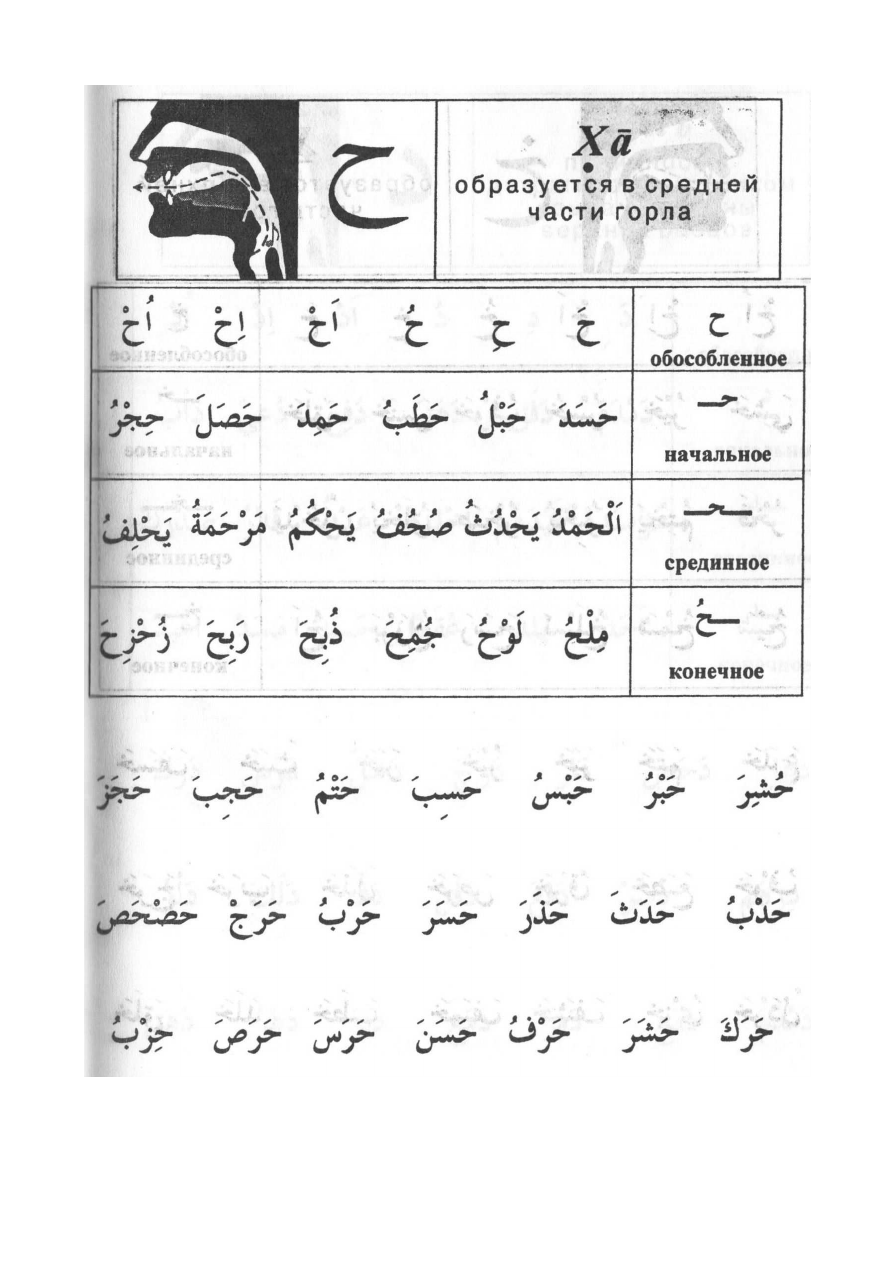 ح
Х̣ā
образуется в средней
части горла
ح حَ حِ حُ اَحْ اِحْ اُحْ
обособленное
حـ حَسَدَ حَبْلُ حَطَبُ حَمِدَ حَصَلَ حِجْرُ
начальное
ـحـ اَلْحَمْدُ يَحْدُثُ صُحُفُ يَحْكُمُ مَرْحَمَةُ يَحْلِفُ
срединное
ـحُ مِلْحُ لَوْحُ جُمِحَ ذُبِحَ رَبِحَ زُحْزِحَ
конечное
حُشِرَ حَبْرُ حَبْسُ حَسِبَ حَتْمُ حَجِبَ حَجَزَ
حَدْبُ حَدَثَ حَذَرَ حَسَرَ حَرْبُ حَرَجْ حَصْحَصَ
حَرَكَ حَشَرَ حَرْفُ حَسَنَ حَرَسَ حَرَصَ حِزْبُ